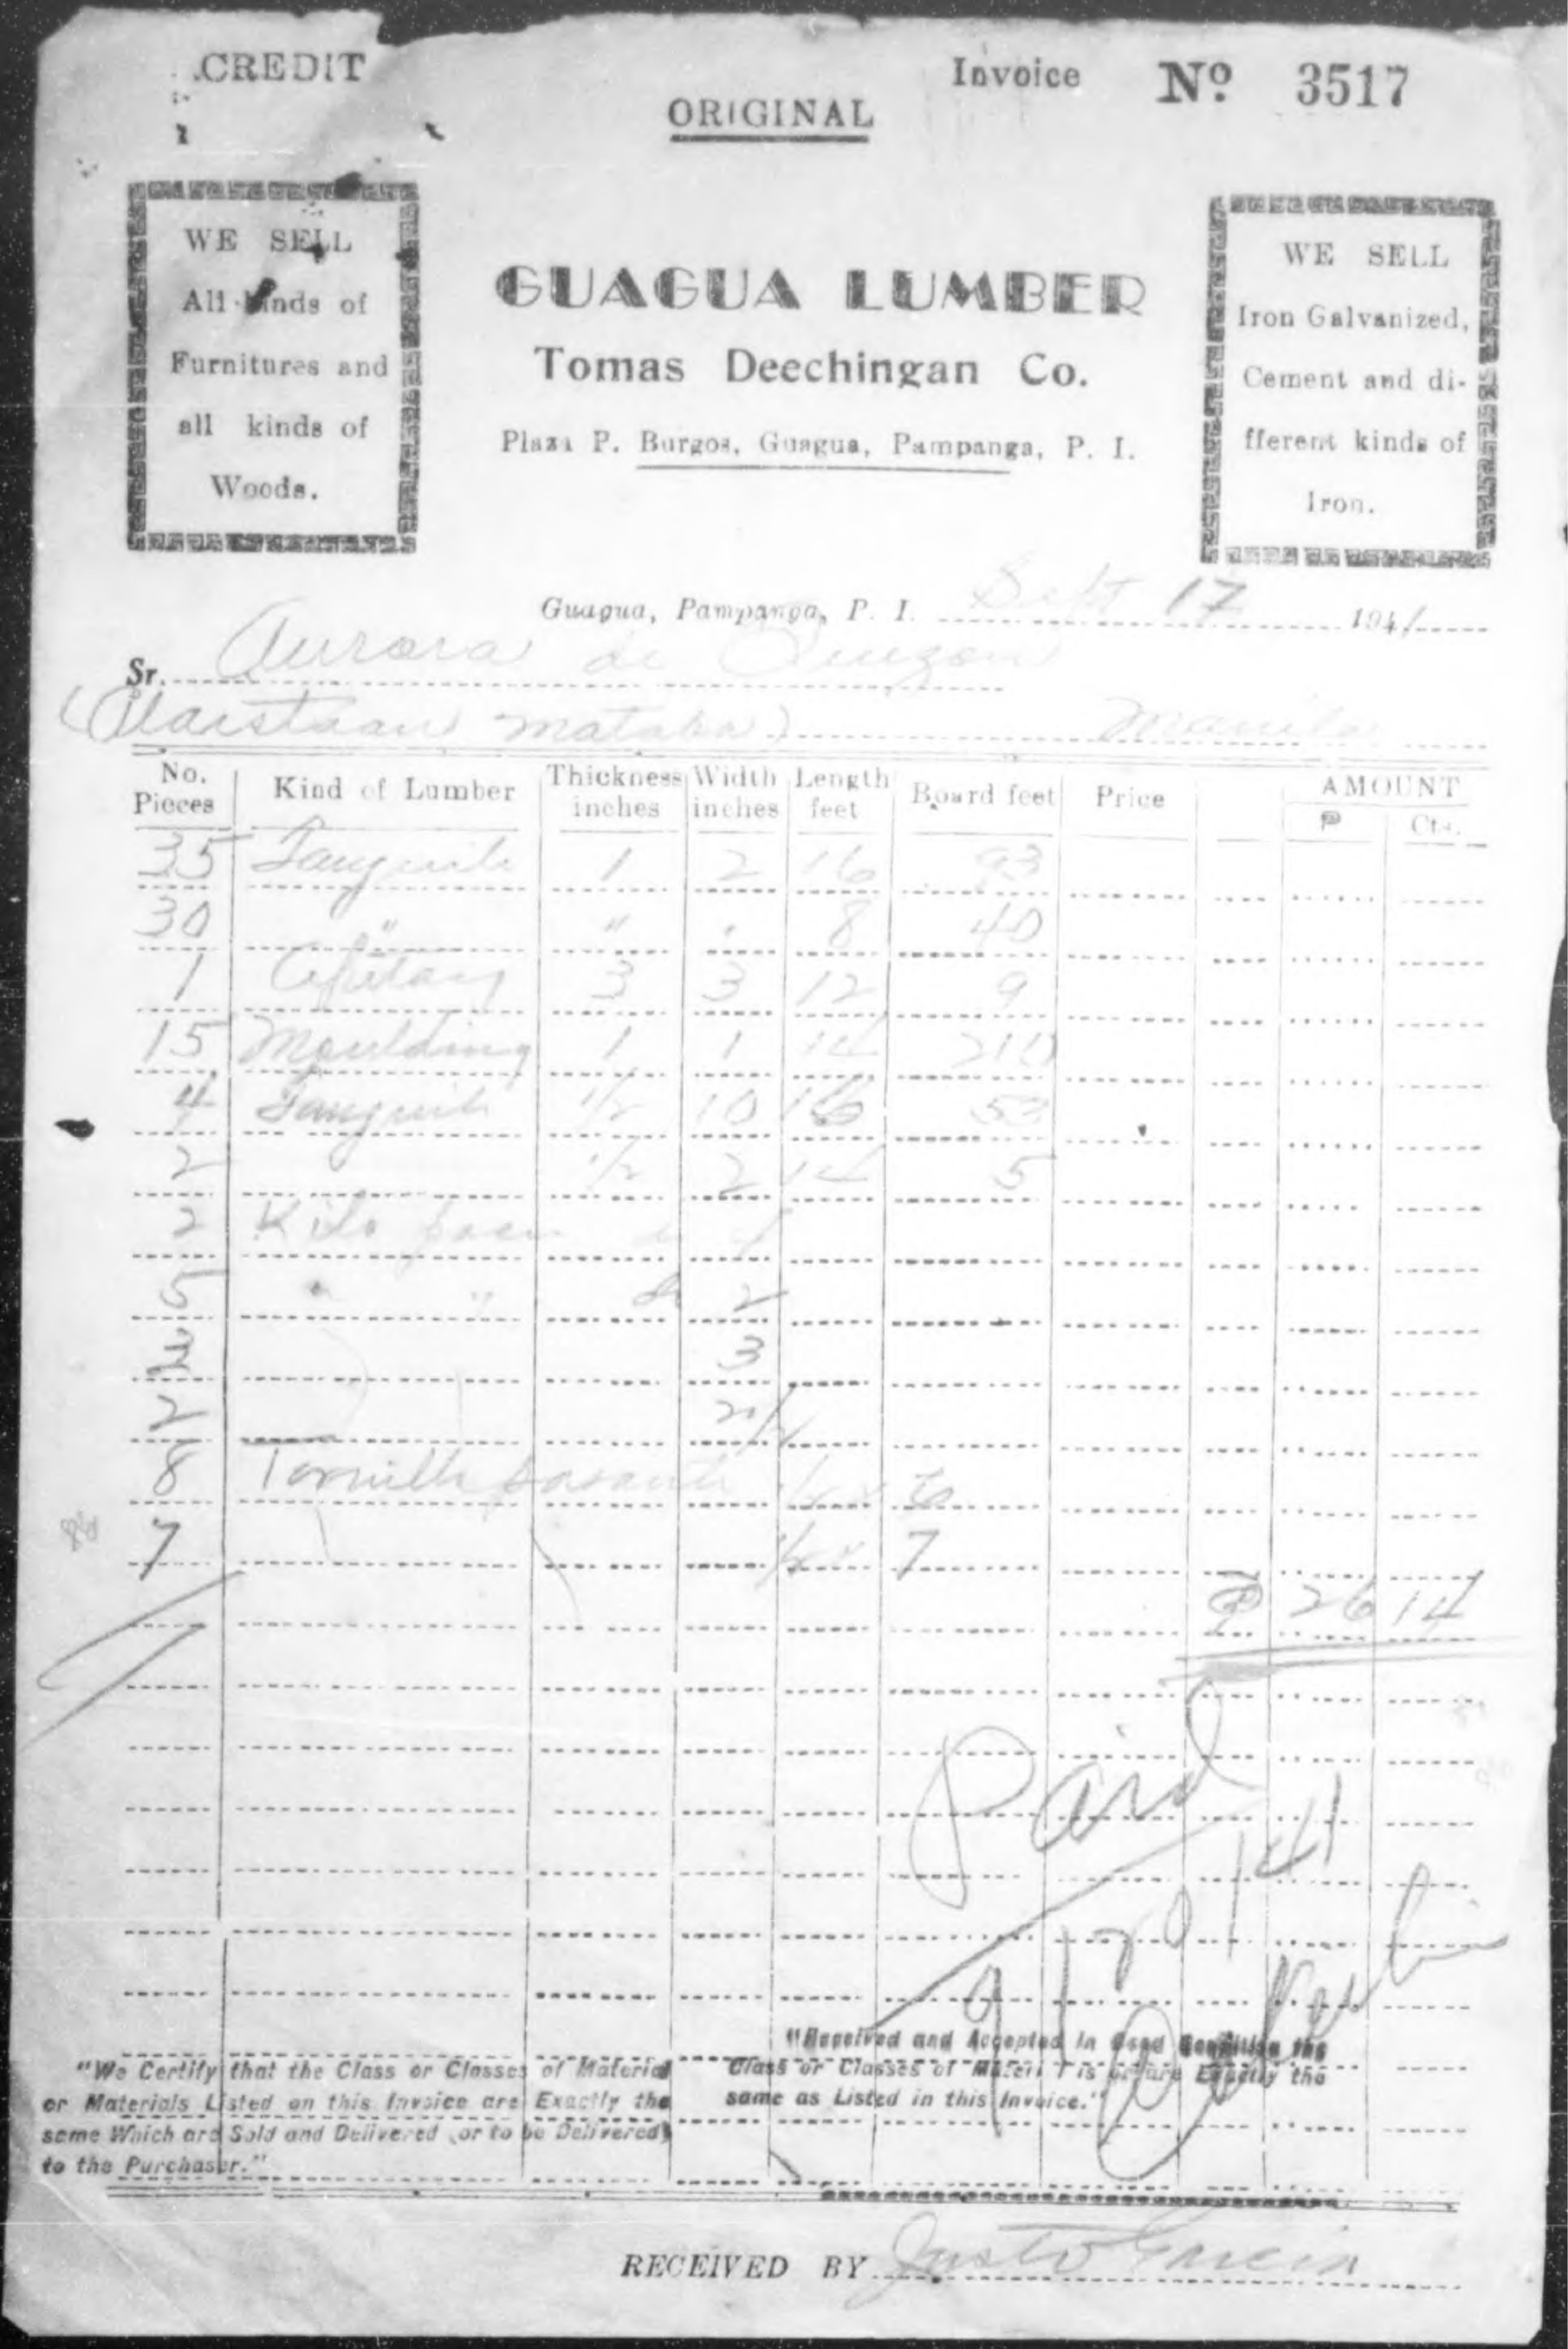 CREDIT
Invoice Nº 3517
ORIGINAL
WE SELL
All kinds of
Furnitures and
all kinds of
Woods.
GUAGUA LUMBER
Tomas Deechingan Co.
Plaza P. Burgos, Guagua, Pampanga, P. I.
WE SELL
Iron Galvanized,
Cement and di-
fferent kinds of
Iron.
Guagua, Pampanga, P. I. Sept 17 1941
Sr. Aurora de Quezon
Manila
No. Pieces Kind of Lumber Thickness inches Width inches Length feet Board feet Price AMOUNT
₱ Cts.
35 Tanguile 1 2 16 93
30 " " " 8 40
1 Apitong 3 3 12 9
15 Moulding 1 1 14 210
4 Tanguile 1/2 10 16 53
2 1/2 2 14 5
2 Kilo
5 " " 2
3
2 2 1/2
8 6
7 7
₱ 26 14
Paid
9/20/41
"We Certify that the Class or Classes of Material
or Materials Listed on this Invoice are Exactly the
same Which are Sold and Delivered (or to be Delivered)
to the Purchaser."
"Received and Accepted in Good Condition the
Class or Classes of Materi is or are Exactly the
same as Listed in this Invoice."
RECEIVED BY Justo Garcia